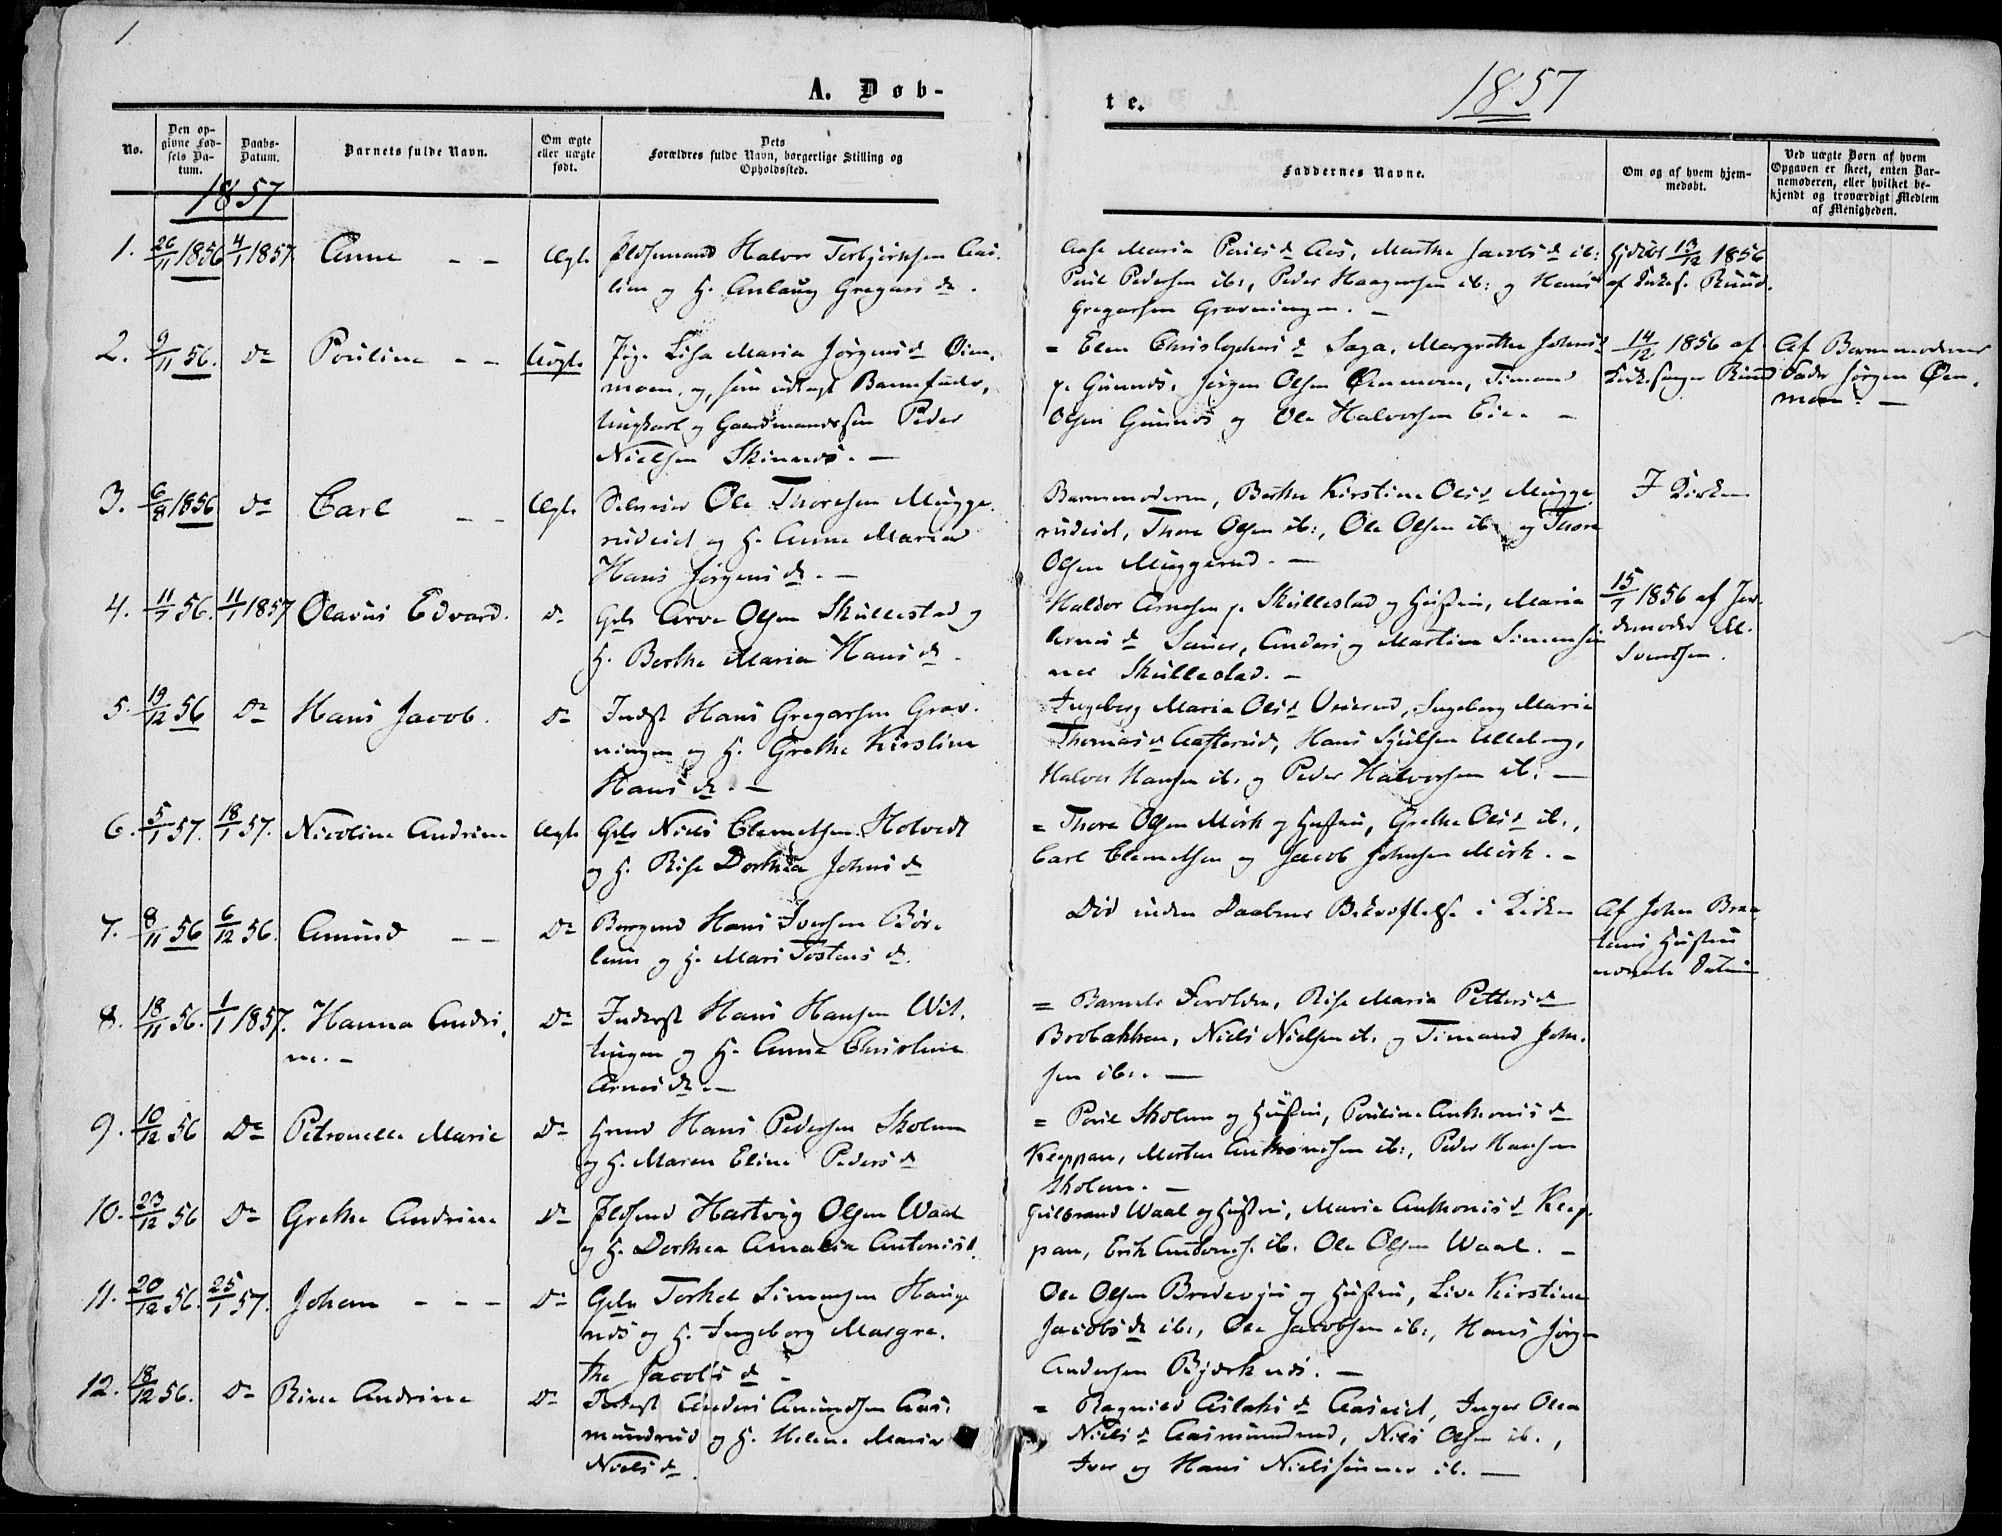 1
A. Døb-
te.
1857
No.
Den op-
givne Fød-
sels Da-
tum.
Daabs-
Datum.
Barnets fulde Navn.
Om ægte
eller uægte
født.
Dets
Forældres fulde Navn, borgerlige Stilling og
Opholdssted.
Faddernes Navne.
Om og af hvem hjem-
medøbt.
Ved uægte Børn af hvem
Opgaven er skeet, enten Bar-
nemoderen, eller hvilket be-
kjendt og troværdigt Medlem
af Menigheden.
1857
1. 26/11 1856 4/1 1857 Anne - - Ægte Halvor Torbjørnsen Aas-
og H. Anlaug Gregarsd.
Aase Maria Poulsd Aas, Marthe Jacobsd ib:
Poul Pedersen ib:, Peder Haagensen ib: og Hans
Gregarsen Gravningen. -
Hjdøbt 13/12 1856
af Kirkes. Ruud.
2. 9/11 56. Do Pouline - - Uægte Pige Lisa Maria Jørgensd Øen-
moen og, som udlagt Barnefader,
Ungkarl og Gaardmandssøn Peder
Nielsen Skinnes. -
= Elen Christophersd Saga, Margrethe Johnsd
p. Gunnes, Jørgen Olsen Øenmoen, Simand
Olsen Gunnes og Ole Halvorsen Eie. -
14/12 1856 af
Kirkesanger Ruud
Af Barnemoderens
Fader Jørgen Øen-
moen. -
3. 6/8 1856 Do Carl - - Ægte Selveier Ole Thoresen Mugge-
rudeiet og H. Anne Maria
Hans Jørgensd. -
Barnemoderen, Berthe Kirstine Olsd Mugge-
rudeiet, Thore Olsen ib:, Ole Olsen ib: og Thore
Olsen Muggerud. -
I Kirken
4. 11/7 56. 11/1 1857 Olavus Edvard. Do Gdb Arve Olsen Skullestad og
H. Berthe Maria Hansd.
Haldor Arnesen p. Skullestad og Hustru, Maria
Arnesd Sanes, Anders og Martin Simensøn-
ner Skullestad. -
15/7 1856 af Jor-
demoder M.
Svendsen.
5. 19/12 56 Do Hans Jacob. Do Inderst Hans Gregarsen Grav-
ningen og H. Grethe Kirstine
Hansd. -
Ingeborg Maria Olsd Veierud, Ingeborg Maria
Thomasd Aasterud, Hans Sjulsen Ulleberg,
Halvor Hansen ib. og Peder Halvorsen ib. -
6. 5/1 57. 18/1 57. Nicoline Andrine Ægte Gdb Niels Clemetsen Holvedt
og H. Rise Dorthea Johnsd
= Thore Olsen Mørk og Hustru, Grethe Olsd ib.,
Carl Clemetsen og Jacob Johnsen Mørk. -
7. 8/11 56 6/12 56. Amund - - Do Borgmd Hans Iversen Bør-
og H. Mari Tostensd.
Død inden Daabens Bekræftelse i Kirken
Af John Braa-
tens Hustru
nævnte Datum
8. 18/11 56. 1/1 1857. Hanna Andri-
ne. - Do Inderst Hans Hansen Wit-
tingen og H. Anne Christine
Arnesd. -
= Barnets Forældre, Rise Maria Pettersd
Brobakken, Niels Nielsen ib. og Simand John-
sen ib:. -
9. 10/12 56 Do Petronelle Marie Do Hmd Hans Pedersen Skolmen
og H. Maren Eline Pedersd
= Poul Skolmen og Hustru, Pouline Anthonisd
Kleppan, Morten Anthonisen ib:, Peder Hansen
Skolmen. -
10. 23/12 56 Do Grethe Andrine Do Hartvig Olsen Waal
og H. Dorthea Amalia Antonisd.
Gulbrand Waal og Hustru, Marie Anthonisd Klep-
pan, Erik Antonis. ib. Ole Olsen Waal. -
11. 20/12 56. 25/1 57. Johan - - - Do Gdb Torkel Simensen Hauge-
nes og H. Ingeborg Margre-
the Jacobsd -
Ole Olsen Bredevejen og Hustru, Live Kirstine
Jacobsd ib:, Ole Jacobsen ib:, Hans Jørgen
Andersen Bjørknes. -
12. 18/12 56. Do Rine Andrine Do Inderst Anders Amundsen Aas-
mundrud og H. Helene Maria
Nielsd.
= Ragnild Aslaksd Aaseiet, Inger Olea
Nielsd Aasmundrud, Niels Olsen ib.,
Iver og Hans Nielssønner ib. -